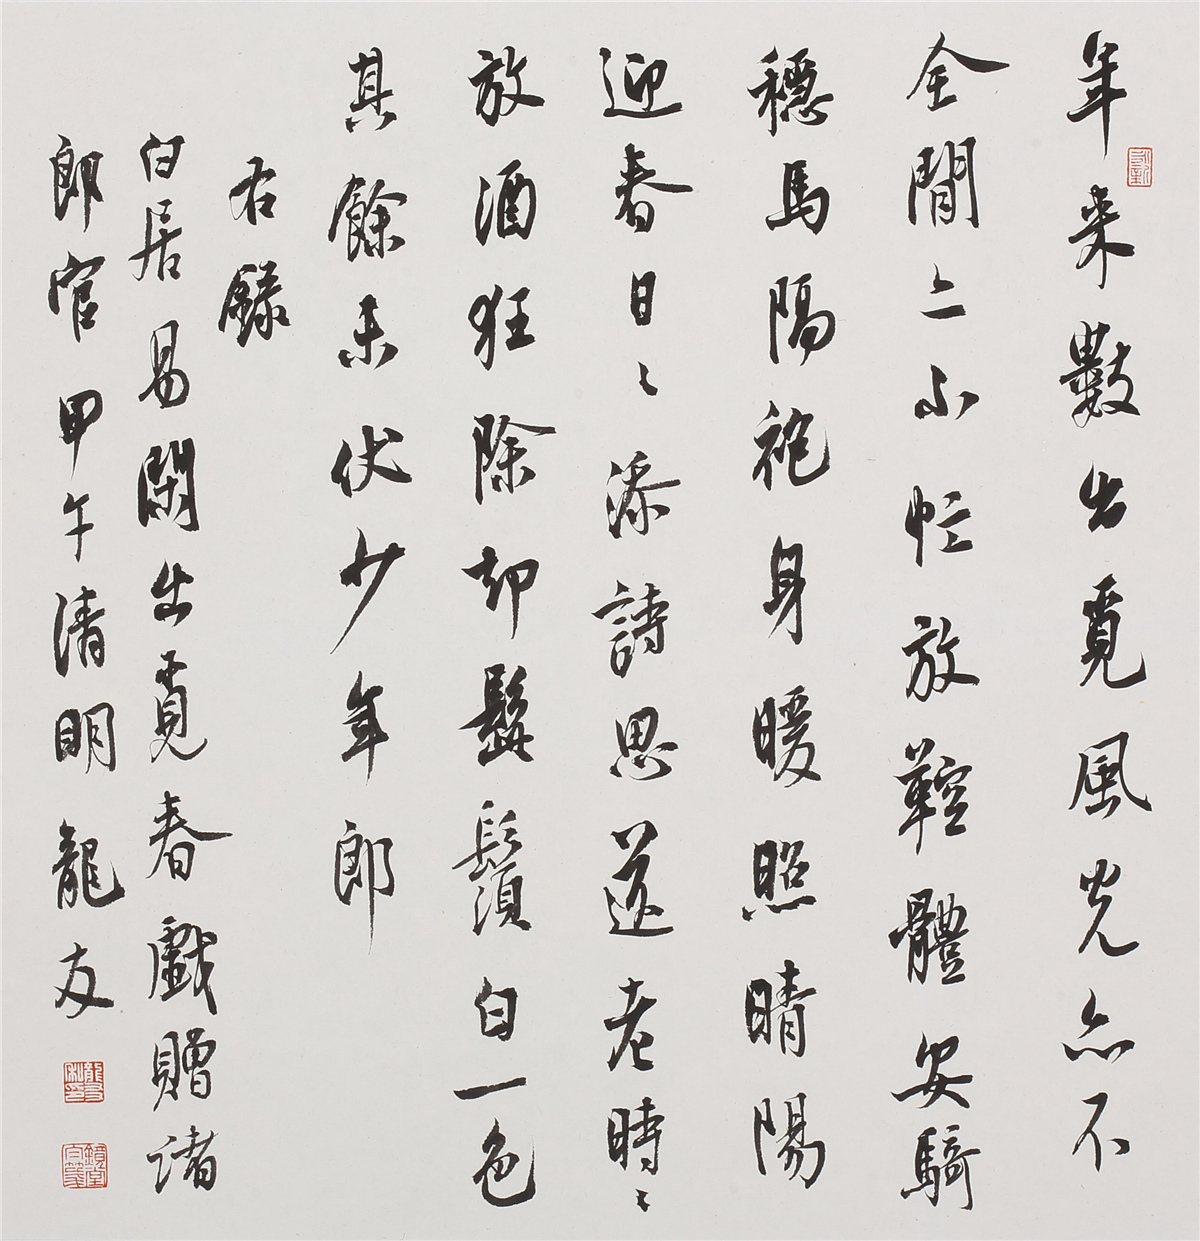 年来數出覓風光亦不
全閒亦不忙放鞚體安騎
穩馬隔袍身暖照晴陽
迎春日〻添詩思送老時〻
放酒狂除却髭鬚白一色
其餘未伏少年郎
右錄
白居易閑出覓春戲贈諸
郎官甲午清明龍友